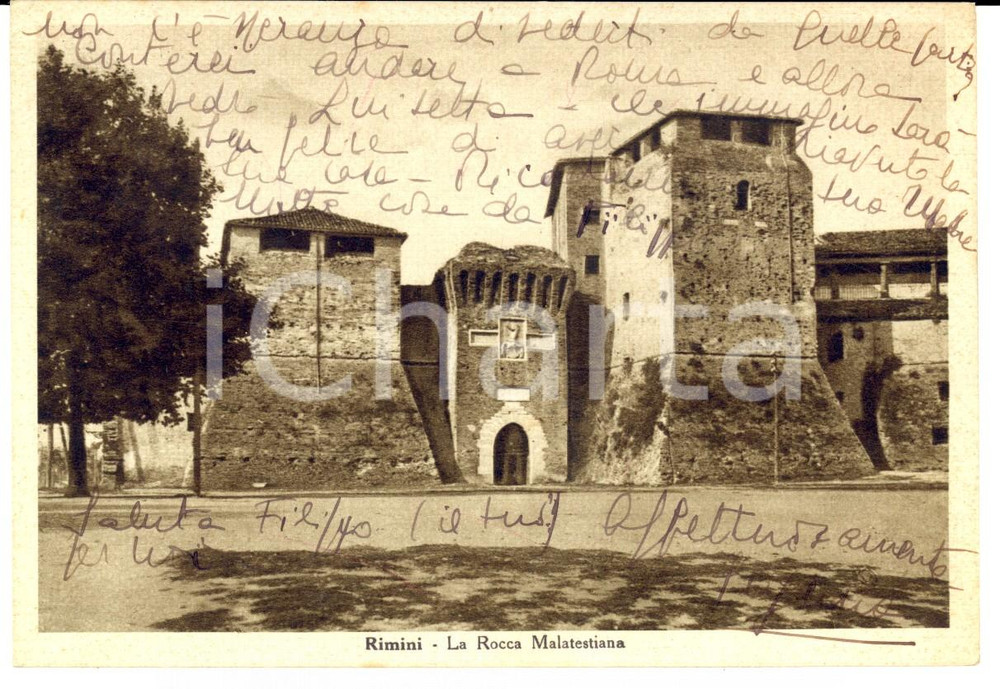 non c'è speranza di vederti da quelle parti
Conterei andare a Roma e allora
vedrò Luisetta e le immagino sarà
ben felice di aver riavuto la
sua casa - tua Madre
Molte cose da Filipp
Saluta Filippo (il tuo) affettuosamente
per noi
iCharta
Rimini - La Rocca Malatestiana